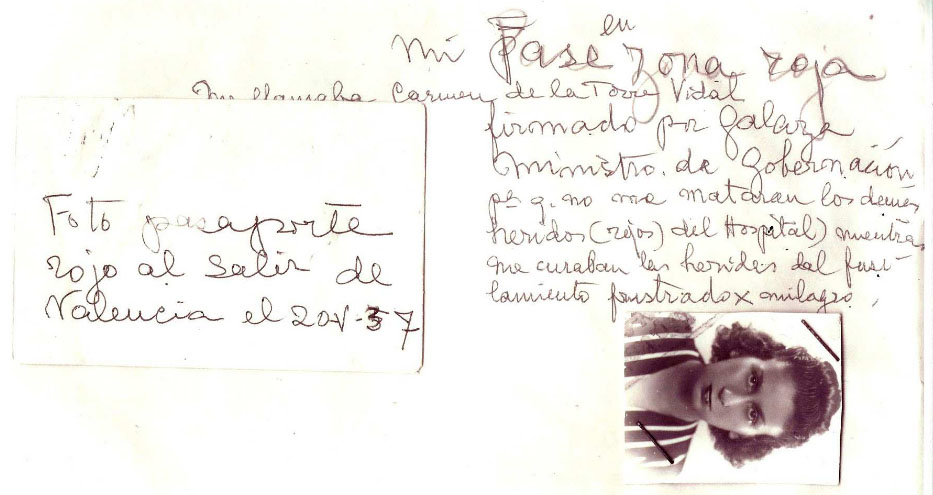 Mi Pase en zona roja
Me llamaba Carmen de la Torre Vidal
firmado por Galarza
Ministro de Gobernación
pª q. no me mataran los demás
heridos (rojos) del Hospital) mientras
me curaban las heridas del fusi-
lamiento frustrado x milagro.
Foto pasaporte
rojo al salir de
Valencia el 20V-37